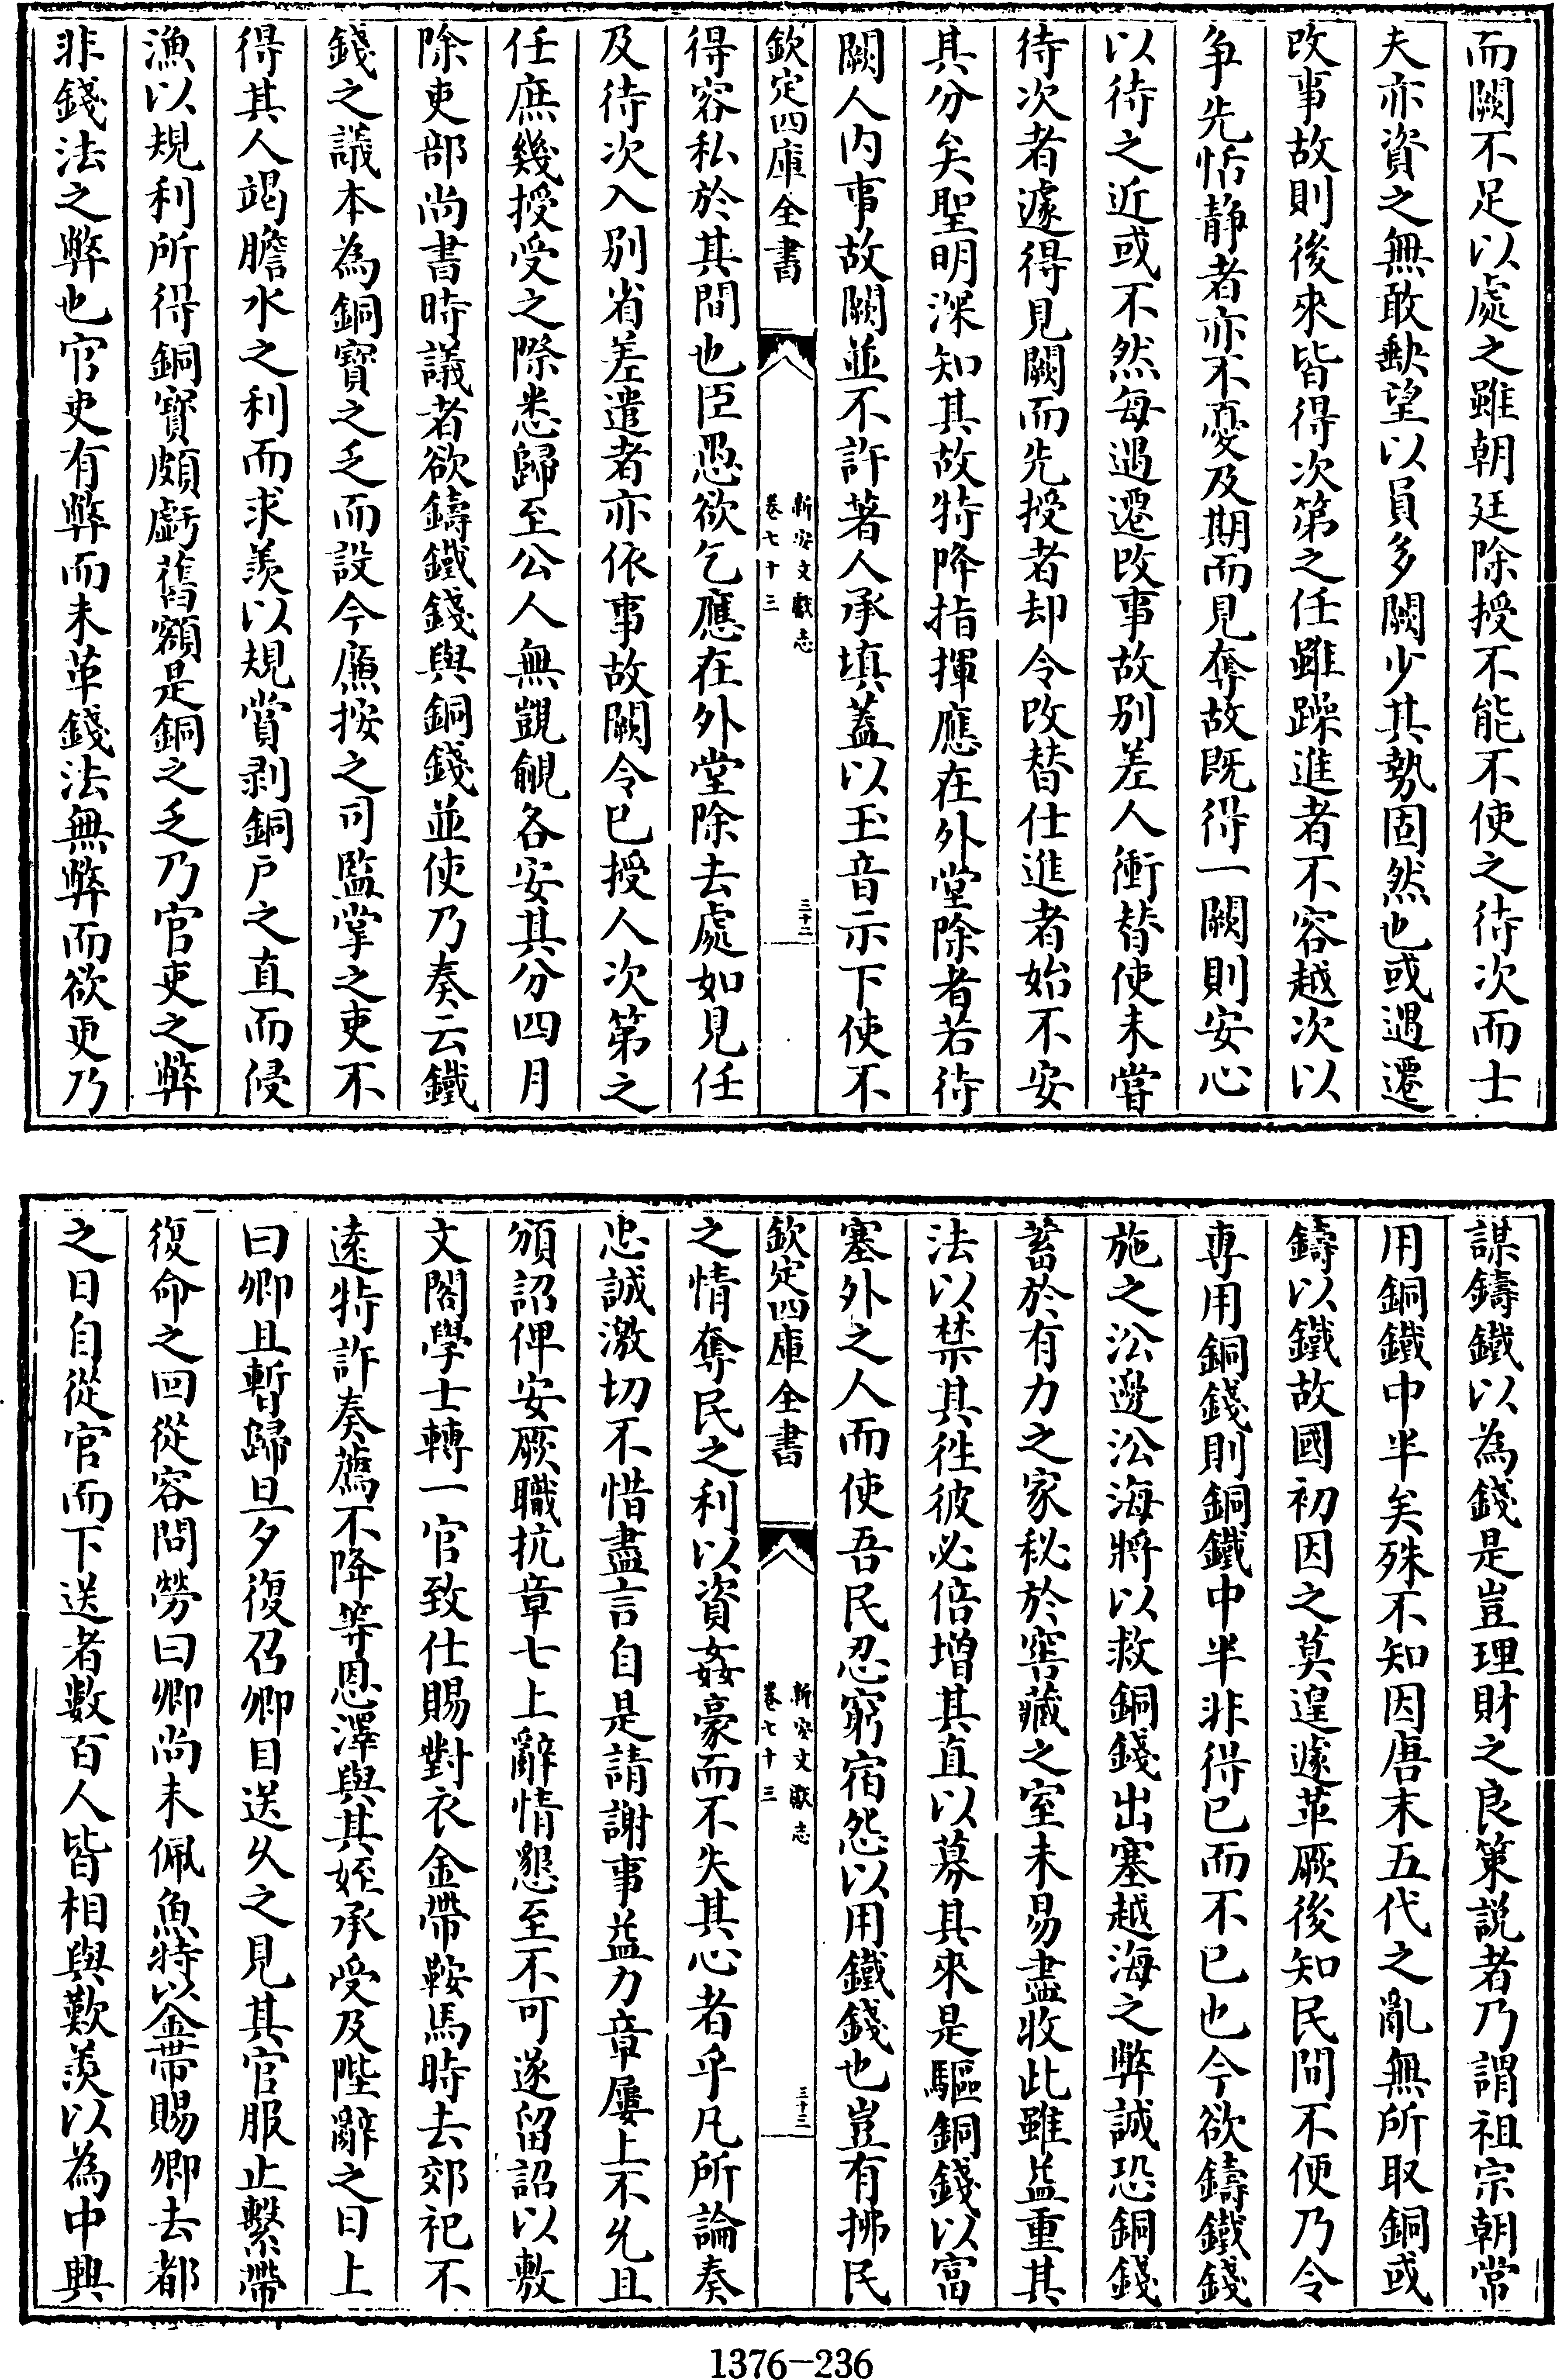 而闕不足以處之雖朝廷除授不能不使之待次而士
夫亦資之無敢缺望以員多闕少其勢固然也或遇遷
改事故則後來皆得次第之任雖躁進者不容越次以
争先恬静者亦不憂及期而見奪故既得一闕則安心
以待之近或不然每遇遷改事故别差人衝替使未嘗
待次者遽得見闕而先授者却令改替仕進者始不安
其分矣聖明深知其故特降指揮應在外堂除者若待
闕人内事故闕並不許著人承填蓋以玉音示下使不
欽定四庫全書
新安文獻志
卷七十三
三十二
得容私於其間也臣愚欲乞應在外堂除去處如見任
及待次入别省差遣者亦依事故闕令已授人次第之
任庶幾授受之際悉歸至公人無覬覦各安其分四月
除吏部尚書時議者欲鑄鐵錢與銅錢並使乃奏云鐵
錢之議本為銅寶之乏而設今廉按之司監掌之吏不
得其人竭膽水之利而求羡以規賞剥銅户之直而侵
漁以規利所得銅寶頗虧舊額是銅之乏乃官吏之弊
非錢法之弊也官吏有弊而未革錢法無弊而欲更乃
謀鑄鐵以為錢是豈理財之良策説者乃謂祖宗朝常
用銅鐵中半矣殊不知因唐末五代之亂無所取銅或
鑄以鐵故國初因之莫遑遽革厥後知民間不便乃令
専用銅錢則銅鐵中半非得已而不已也今欲鑄鐵錢
施之㳂邊㳂海將以救銅錢出塞越海之弊誠恐銅錢
蓄於有力之家秘於窖藏之室未易盡收此雖益重其
法以禁其徃彼必倍增其直以募其來是驅銅錢以富
塞外之人而使吾民忍窮宿怨以用鐵錢也豈有拂民
欽定四庫全書
新安文獻志
卷七十三
三十三
之情奪民之利以資姦豪而不失其心者乎凡所論奏
忠誠激切不惜盡言自是請謝事益力章屢上不允且
頒詔俾安厥職抗章七上辭情懇至不可遂留詔以敷
文閣學士轉一官致仕賜對衣金帶鞍馬時去郊祀不
逺特許奏薦不降等恩澤與其姪承受及陛辭之日上
曰卿且暫歸旦夕復召卿目送久之見其官服止繫帶
復命之回從容問勞曰卿尚未佩魚特以金帶賜卿去都
之日自從官而下送者數百人皆相與歎羡以為中興
1376-236